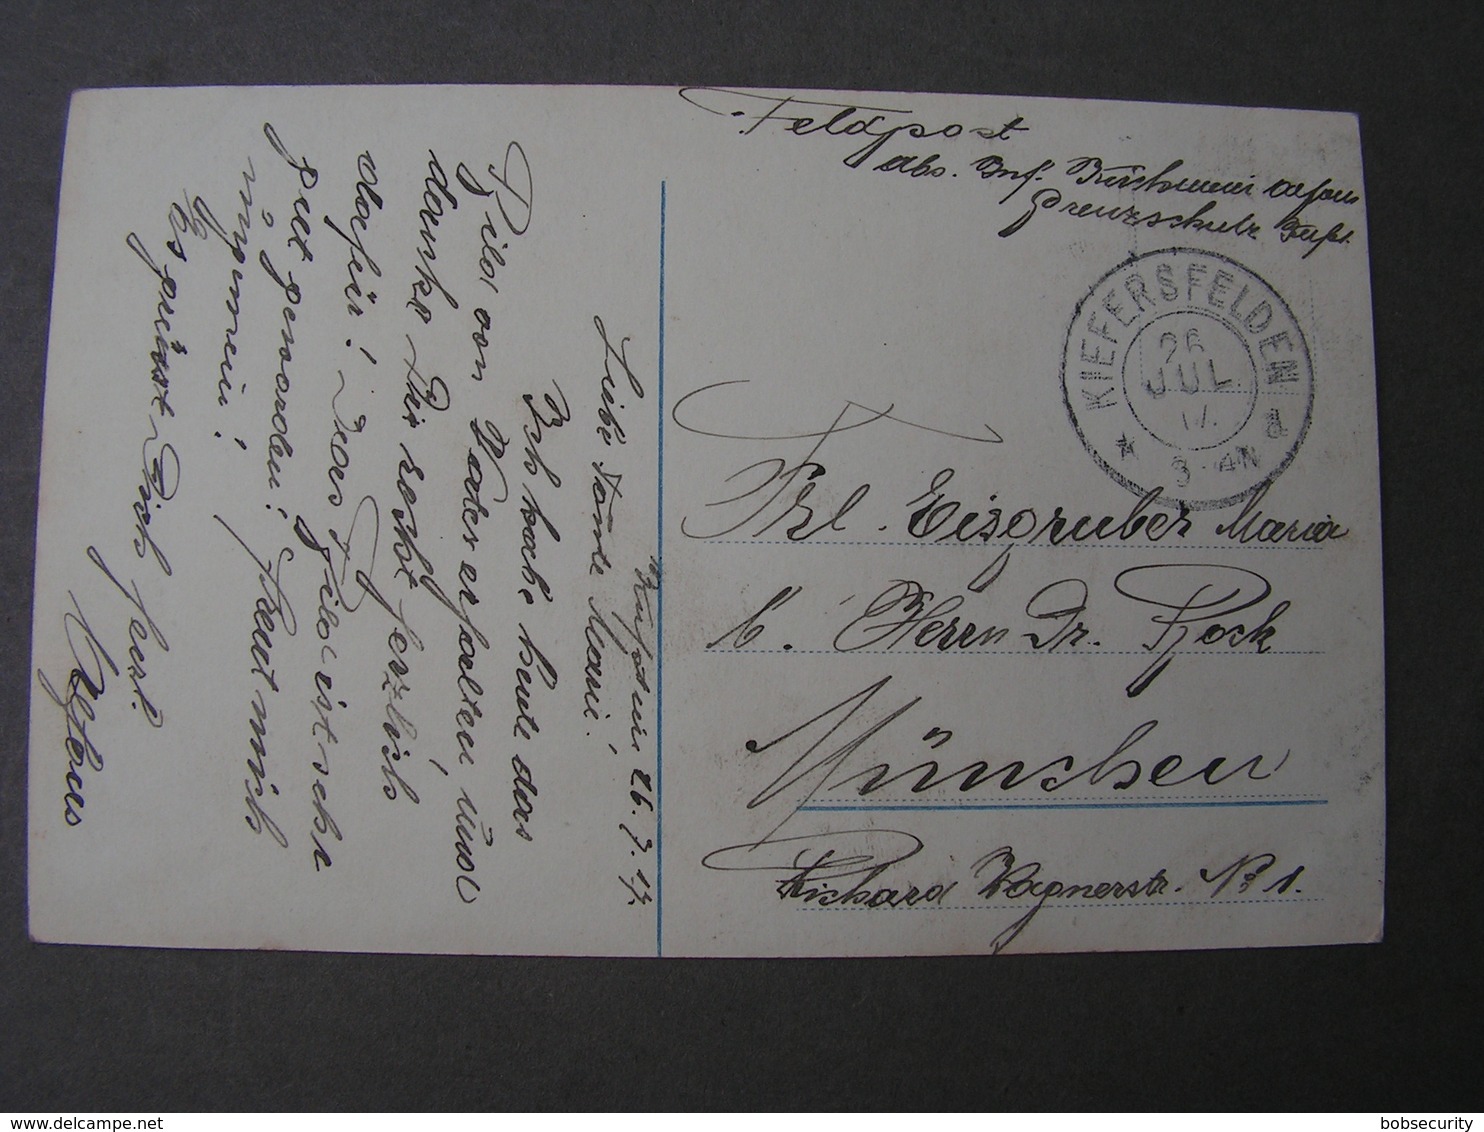 Feldpost
Abs. Inf. Alfons
Grenzschutz Kufst.
KIEFERSFELDEN
26
JUL
17.
3-4N
a
Frl. Eisgruber Maria
b. Herrn Dr. Pfock
München
Richard Wagnerstr. No 1.
Kufstein 26.7.17.
Liebe Tante Marie!
Ich habe heute das
Bild von Vater erhalten und
danke Dir recht herzlich
dafür! Das Bild ist sehr
gut geworden! Freut mich
ungemein!
Es grüsst Dich herzl.
Alfons
bobsecurity